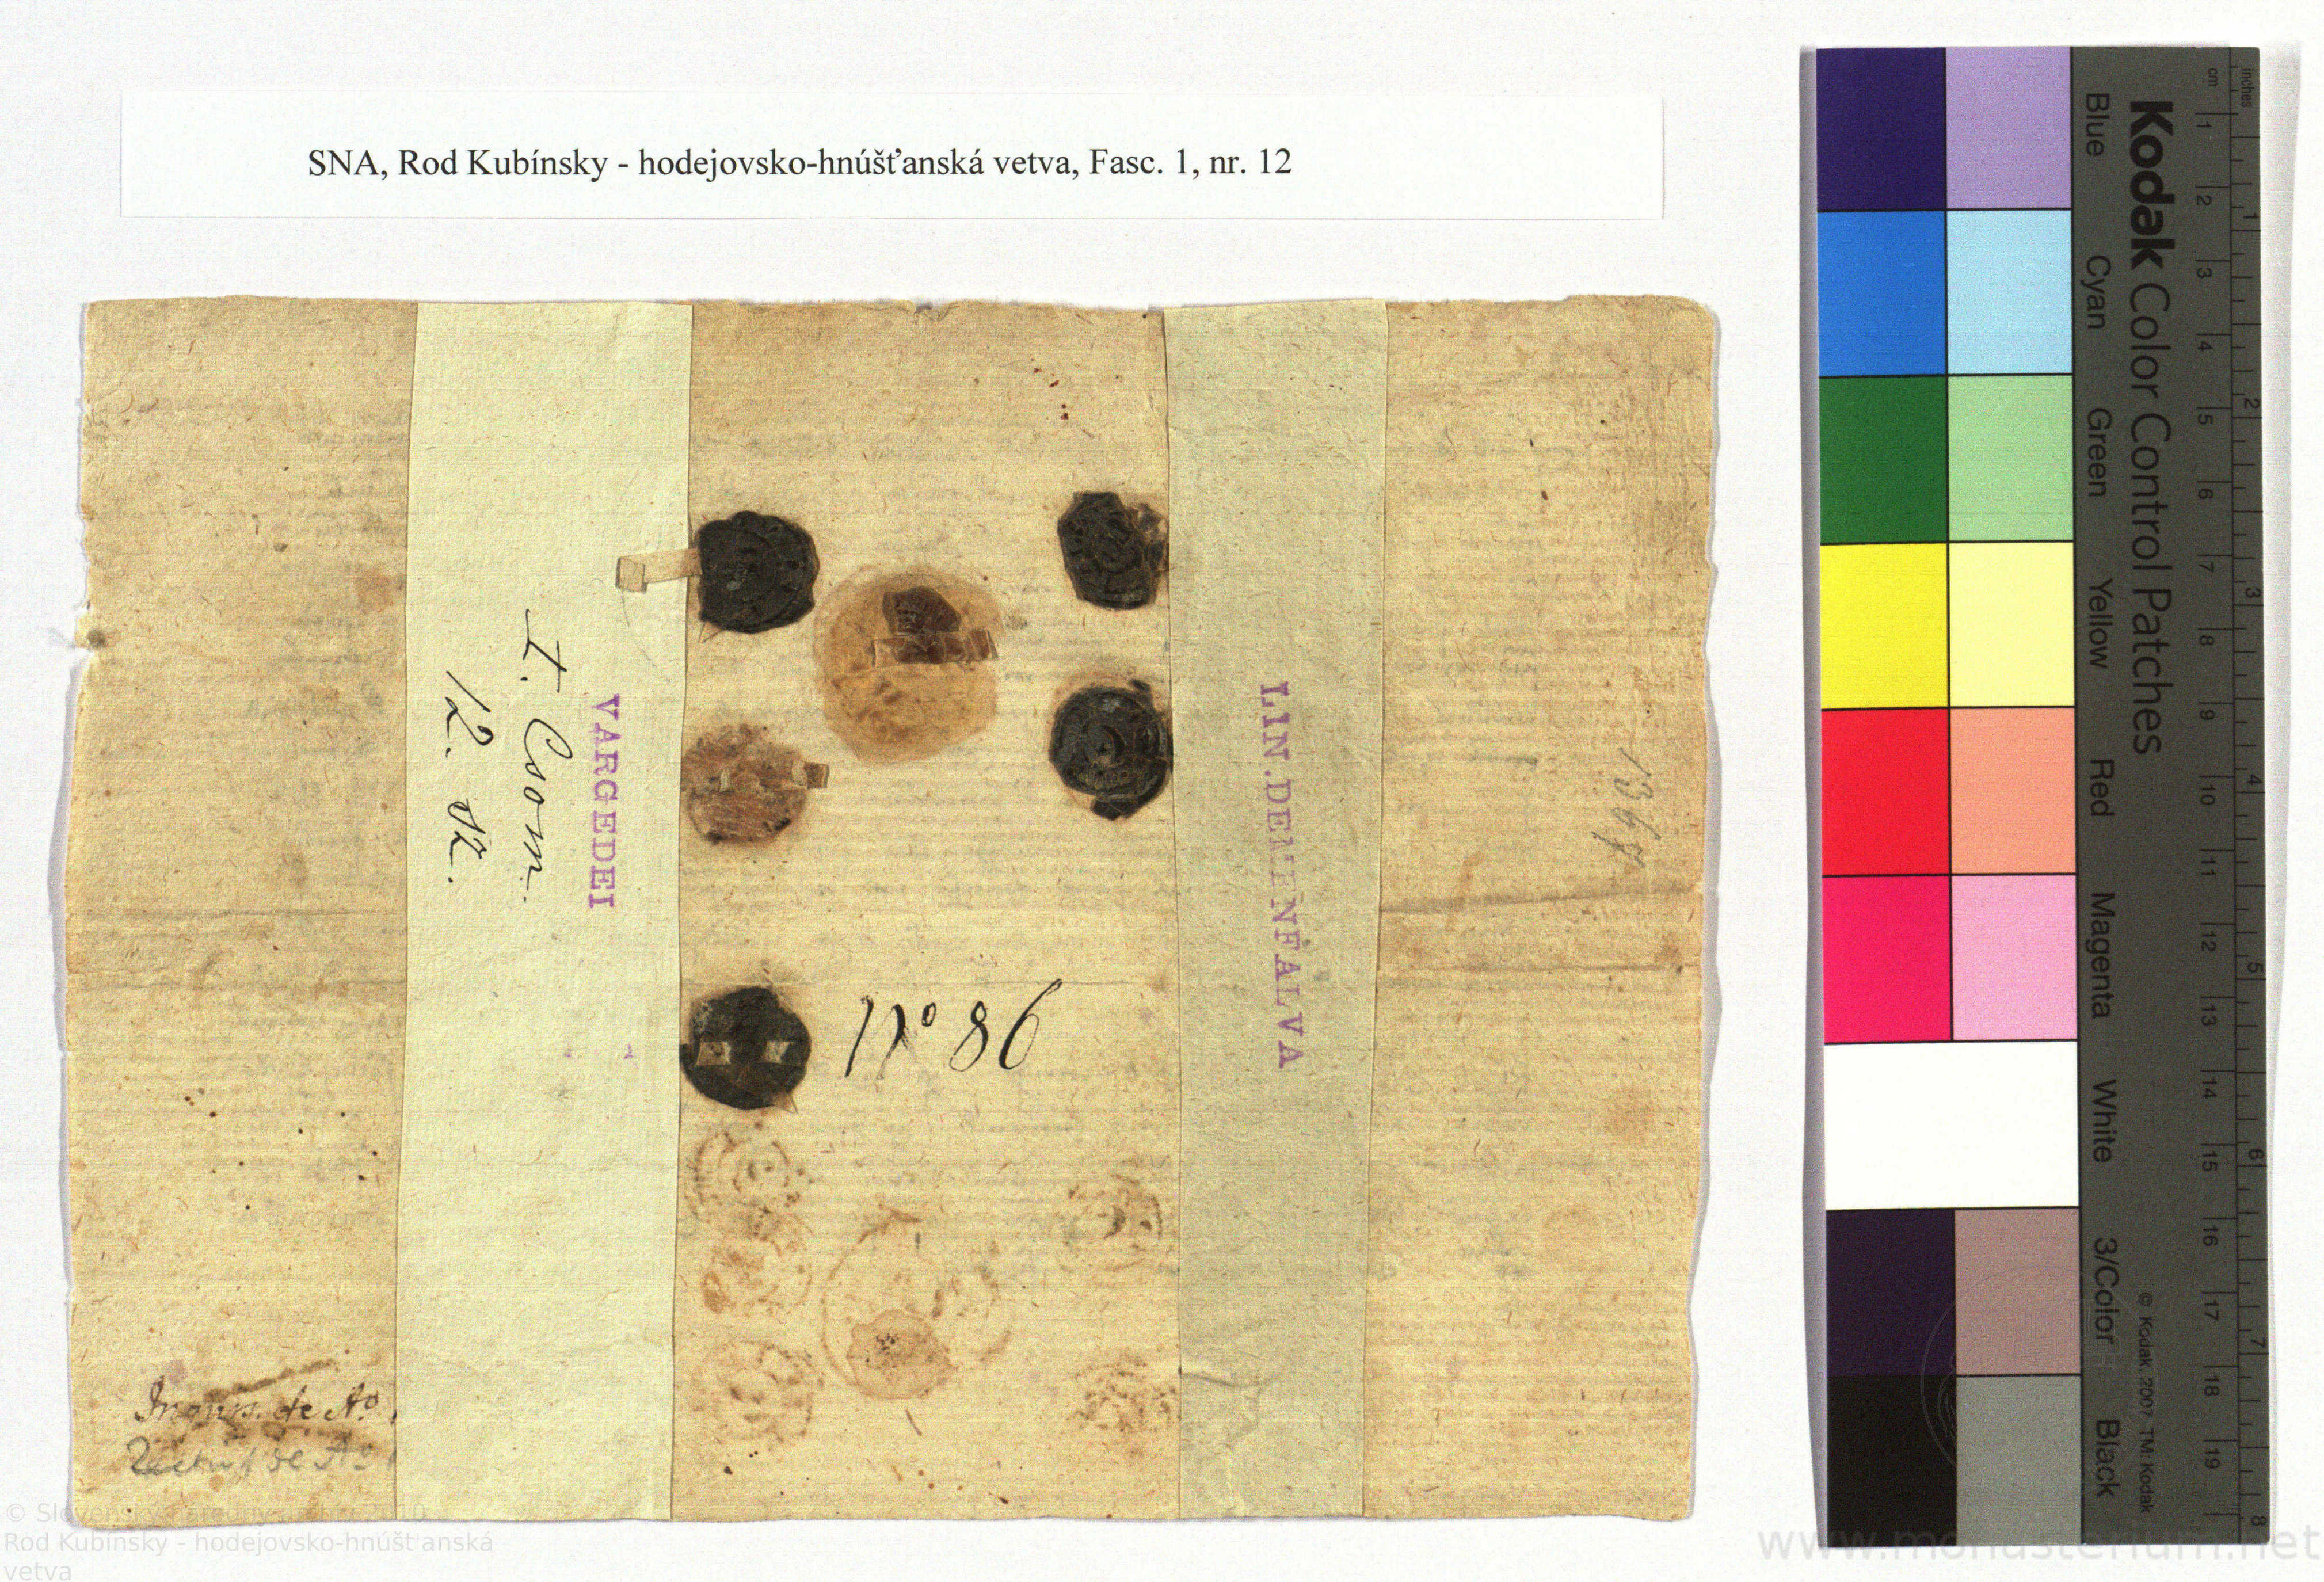 SNA, Rod Kubínsky - hodejovsko-hnúšťanská vetva, Fasc. 1, nr. 12
VARGEDEI
1. Csom.
12. sz.
LIN.DEMENFALVA
No 86
Inquis. de Ao
de Ao
© Slovenský národný archív 2010
Rod Kubínsky - hodejovsko-hnúšt'anská
vetva
www.monasterium.net
Kodak Color Control Patches
Blue Cyan Green Yellow Red Magenta White 3/Color Black
© Kodak, 2007, TM: Kodak
cm 1 2 3 4 5 6 7 8 9 10 11 12 13 14 15 16 17 18 19
inches 1 2 3 4 5 6 7 8